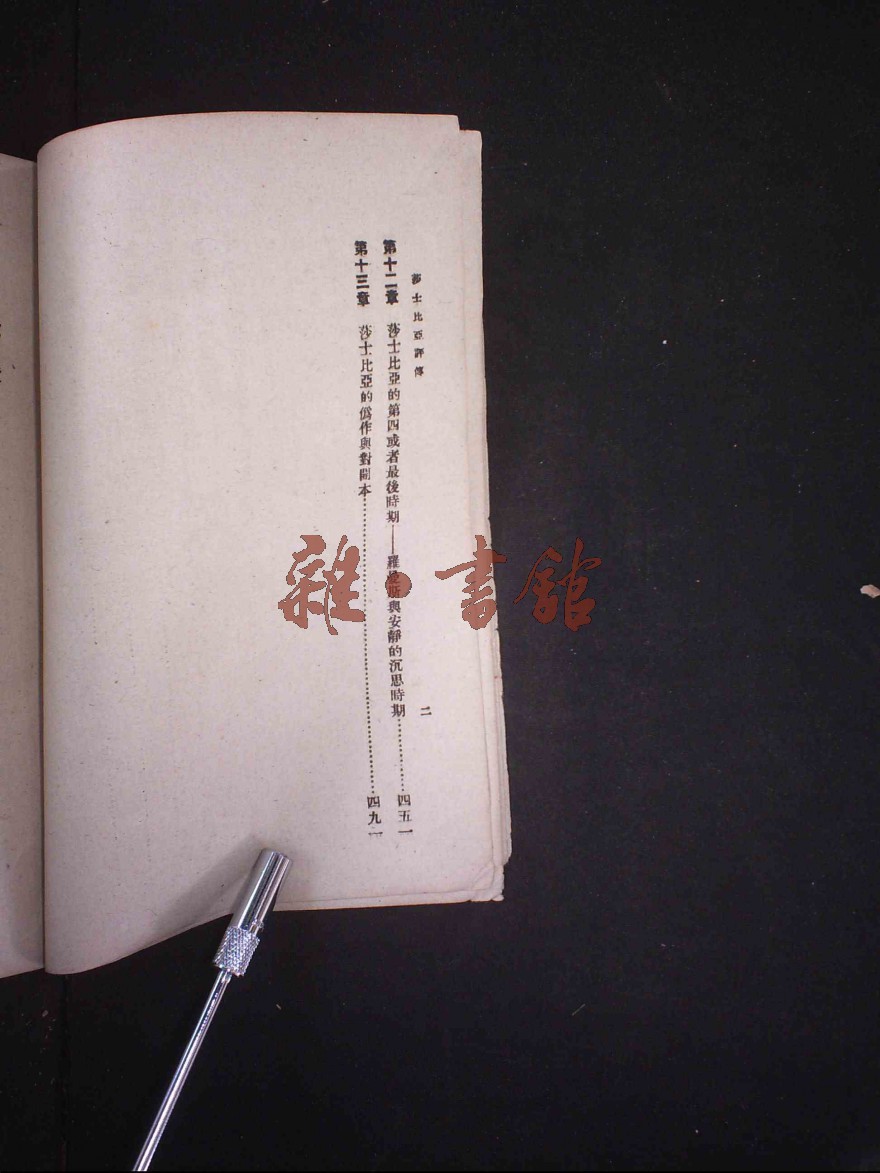 莎士比亞評傳
二
第十二章 莎士比亞的第四或者最後時期——羅曼斯與安靜的沉思時期…………四五一
第十三章 莎士比亞的僞作與對開本…………四九一
雜·書館